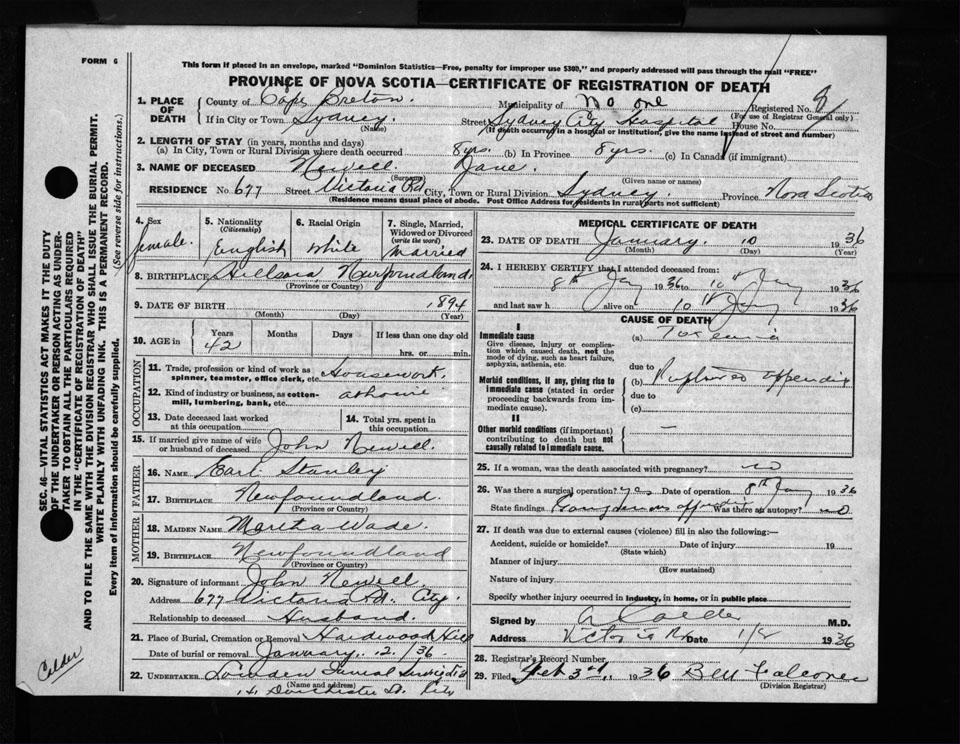 FORM 6
This form if placed in an envelope, marked "Dominion Statistics—Free, penalty for improper use $300," and properly addressed will pass through the mail "FREE"
PROVINCE OF NOVA SCOTIA—CERTIFICATE OF REGISTRATION OF DEATH
1. PLACE OF DEATH County of Cape Breton. Municipality of No one Registered No. 8
(For use of Registrar General only)
If in City or Town Sydney. Street Sydney City Hospital House No.
(Name) (If death occurred in a hospital or institution, give the name instead of street and number)
2. LENGTH OF STAY (in years, months and days)
(a) In City, Town or Rural Division where death occurred 8 yrs. (b) In Province 8 yrs. (c) In Canada (if immigrant)
3. NAME OF DECEASED Newell Jane.
(Surname) (Given name or names)
RESIDENCE No. 677 Street Victoria Rd City, Town or Rural Division Sydney. Province Nova Scotia
(Residence means usual place of abode. Post Office Address for residents in rural parts not sufficient)
4. Sex female.
5. Nationality (Citizenship) English
6. Racial Origin White
7. Single, Married, Widowed or Divorced (write the word) Married
8. BIRTHPLACE Newfoundland.
(Province or Country)
9. DATE OF BIRTH 1894
(Month) (Day) (Year)
10. AGE in Years 42 Months Days If less than one day old
hrs. or min.
OCCUPATION
11. Trade, profession or kind of work as spinner, teamster, office clerk, etc. Housework.
12. Kind of industry or business, as cotton-mill, lumbering, bank, etc. at home
13. Date deceased last worked at this occupation
14. Total yrs. spent in this occupation
15. If married give name of wife or husband of deceased John Newell.
FATHER
16. NAME Earl Stanley
17. BIRTHPLACE Newfoundland.
(Province or Country)
MOTHER
18. MAIDEN NAME Martha Wade.
19. BIRTHPLACE Newfoundland
(Province or Country)
20. Signature of informant John Newell.
Address 677 Victoria Rd. City.
Relationship to deceased Husband.
21. Place of Burial, Cremation or Removal Hardwood Hill
Date of burial or removal January. 12. 36.
22. UNDERTAKER Funeral
(Name and address)
Dorchester St. City
MEDICAL CERTIFICATE OF DEATH
23. DATE OF DEATH January. 10 1936
(Month) (Day) (Year)
24. I HEREBY CERTIFY that I attended deceased from:
8th Jany 1936 to 10th Jany 1936
and last saw h alive on 10th Jany 1936
CAUSE OF DEATH
I
Immediate cause
Give disease, injury or complication which caused death, not the mode of dying, such as heart failure, asphyxia, asthenia, etc.
(a) Toxemia
due to
Morbid conditions, if any, giving rise to immediate cause (stated in order proceeding backwards from immediate cause).
(b) Ruptured appendix
due to
(c)
II
Other morbid conditions (if important) contributing to death but not causally related to immediate cause.
—
25. If a woman, was the death associated with pregnancy? no
26. Was there a surgical operation? yes Date of operation 8th Jany 1936
State findings Gangrenous Was there an autopsy? no
27. If death was due to external causes (violence) fill in also the following:—
Accident, suicide or homicide? Date of injury 19
(State which)
Manner of injury
(How sustained)
Nature of injury
Specify whether injury occurred in industry, in home, or in public place
Signed by A Calder M.D.
Address Victoria Rd Date 1936
28. Registrar's Record Number
29. Filed Feb 3rd, 1936 Falconer
(Division Registrar)
SEC. 46—VITAL STATISTICS ACT MAKES IT THE DUTY
OF THE UNDERTAKER OR PERSON ACTING AS UNDER-
TAKER TO OBTAIN ALL THE PARTICULARS REQUIRED
IN THE "CERTIFICATE OF REGISTRATION OF DEATH"
AND TO FILE THE SAME WITH THE DIVISION REGISTRAR WHO SHALL ISSUE THE BURIAL PERMIT.
WRITE PLAINLY WITH UNFADING INK. THIS IS A PERMANENT RECORD.
Every item of information should be carefully supplied.
(See reverse side for instructions.)
Calder